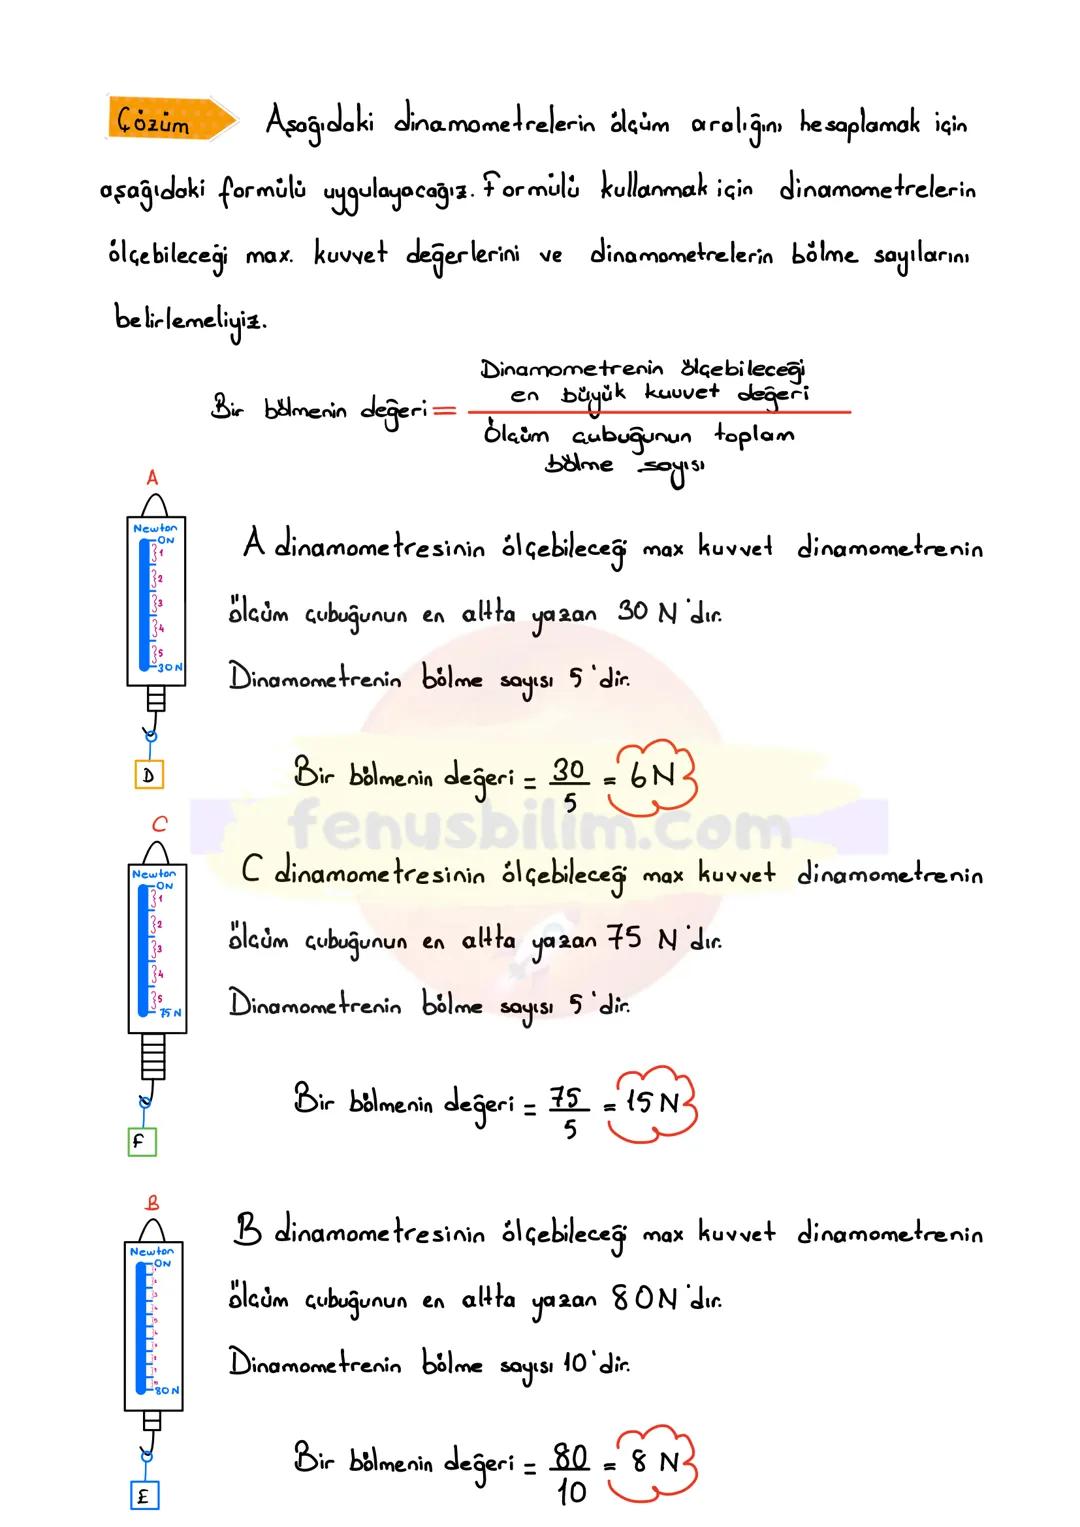 Çözüm Aşağıdaki dinamometrelerin ölçüm aralığını hesaplamak için
aşağıdaki formülü uygulayacağız. Formülü kullanmak için dinamometrelerin
ölçebileceği max. kuvvet değerlerini ve dinamometrelerin bölme sayılarını
belirlemeliyiz.
Dinamometrenin ölçebileceği
en büyük kuvvet değeri
Bir bölmenin değeri =
Ölçüm çubuğunun toplam
bölme sayısı
A
Newton
0N
1
2
3
4
5
30N
D
A dinamometresinin ölçebileceği max kuvvet dinamometrenin
ölçüm çubuğunun en altta yazan 30 N'dır.
Dinamometrenin bölme sayısı 5'dir.
Bir bölmenin değeri = 30 = 6N
5
fenusbilim.com
C
Newton
0N
1
2
3
4
5
75 N
F
C dinamometresinin ölçebileceği max kuvvet dinamometrenin
ölçüm çubuğunun en altta yazan 75 N'dır.
Dinamometrenin bölme sayısı 5'dir.
Bir bölmenin değeri = 75 = 15 N
5
B
Newton
0N
80N
E
B dinamometresinin ölçebileceği max kuvvet dinamometrenin
ölçüm çubuğunun en altta yazan 80N'dır.
Dinamometrenin bölme sayısı 10'dir.
Bir bölmenin değeri = 80 = 8 N
10